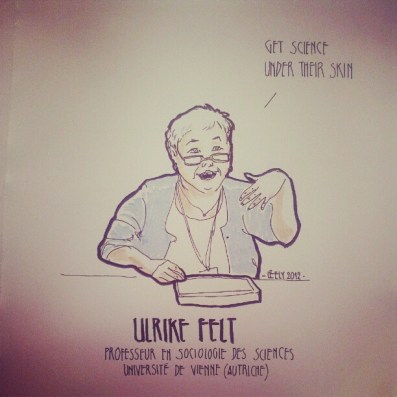 GET SCIENCE
UNDER THEIR SKIN
-LÉELY 2012-
ULRIKE FELT
PROFESSEUR EN SOCIOLOGIE DES SCIENCES
UNIVERSITÉ DE VIENNE (AUTRICHE)